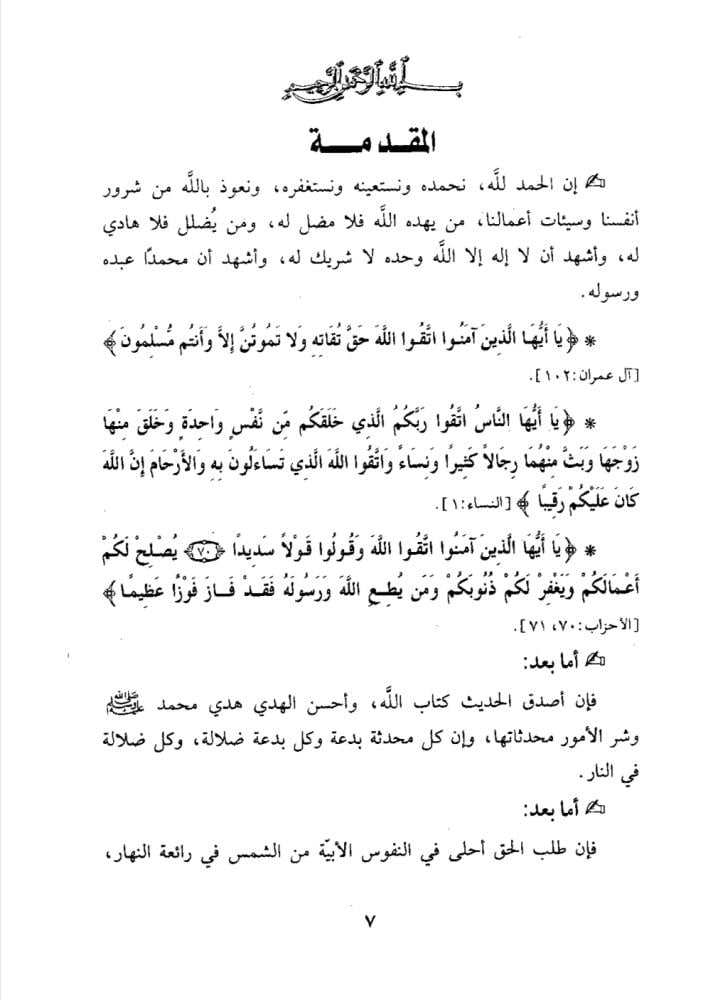 بسم الله الرحمن الرحيم
المقدمة
إن الحمد للَّه، نحمده ونستعينه ونستغفره، ونعوذ باللَّه من شرور
أنفسنا وسيئات أعمالنا، من يهده اللَّه فلا مضل له، ومن يُضلل فلا هادي
له، وأشهد أن لا إله إلا اللَّه وحده لا شريك له، وأشهد أن محمدًا عبده
ورسوله.
* ﴿ يَا أَيُّهَا الَّذِينَ آمَنُوا اتَّقُوا اللَّهَ حَقَّ تُقَاتِهِ وَلا تَمُوتُنَّ إِلاَّ وَأَنتُم مُّسْلِمُونَ ﴾
[آل عمران:١٠٢].
* ﴿ يَا أَيُّهَا النَّاسُ اتَّقُوا رَبَّكُمُ الَّذِي خَلَقَكُم مِّن نَّفْسٍ وَاحِدَةٍ وَخَلَقَ مِنْهَا
زَوْجَهَا وَبَثَّ مِنْهُمَا رِجَالاً كَثِيرًا وَنِسَاءً وَاتَّقُوا اللَّهَ الَّذِي تَسَاءَلُونَ بِهِ وَالأَرْحَامَ إِنَّ اللَّهَ
كَانَ عَلَيْكُمْ رَقِيبًا ﴾ [النساء:١].
* ﴿ يَا أَيُّهَا الَّذِينَ آمَنُوا اتَّقُوا اللَّهَ وَقُولُوا قَوْلاً سَدِيدًا ﴿٧٠﴾ يُصْلِحْ لَكُمْ
أَعْمَالَكُمْ وَيَغْفِرْ لَكُمْ ذُنُوبَكُمْ وَمَن يُطِعِ اللَّهَ وَرَسُولَهُ فَقَدْ فَازَ فَوْزًا عَظِيمًا ﴾
[الأحزاب:٧٠، ٧١].
أما بعد:
فإن أصدق الحديث كتاب اللَّه، وأحسن الهدي هدي محمد ﷺ
وشر الأمور محدثاتها، وإن كل محدثة بدعة وكل بدعة ضلالة، وكل ضلالة
في النار.
أما بعد:
فإن طلب الحق أحلى في النفوس الأبيّة من الشمس في رائعة النهار،
٧